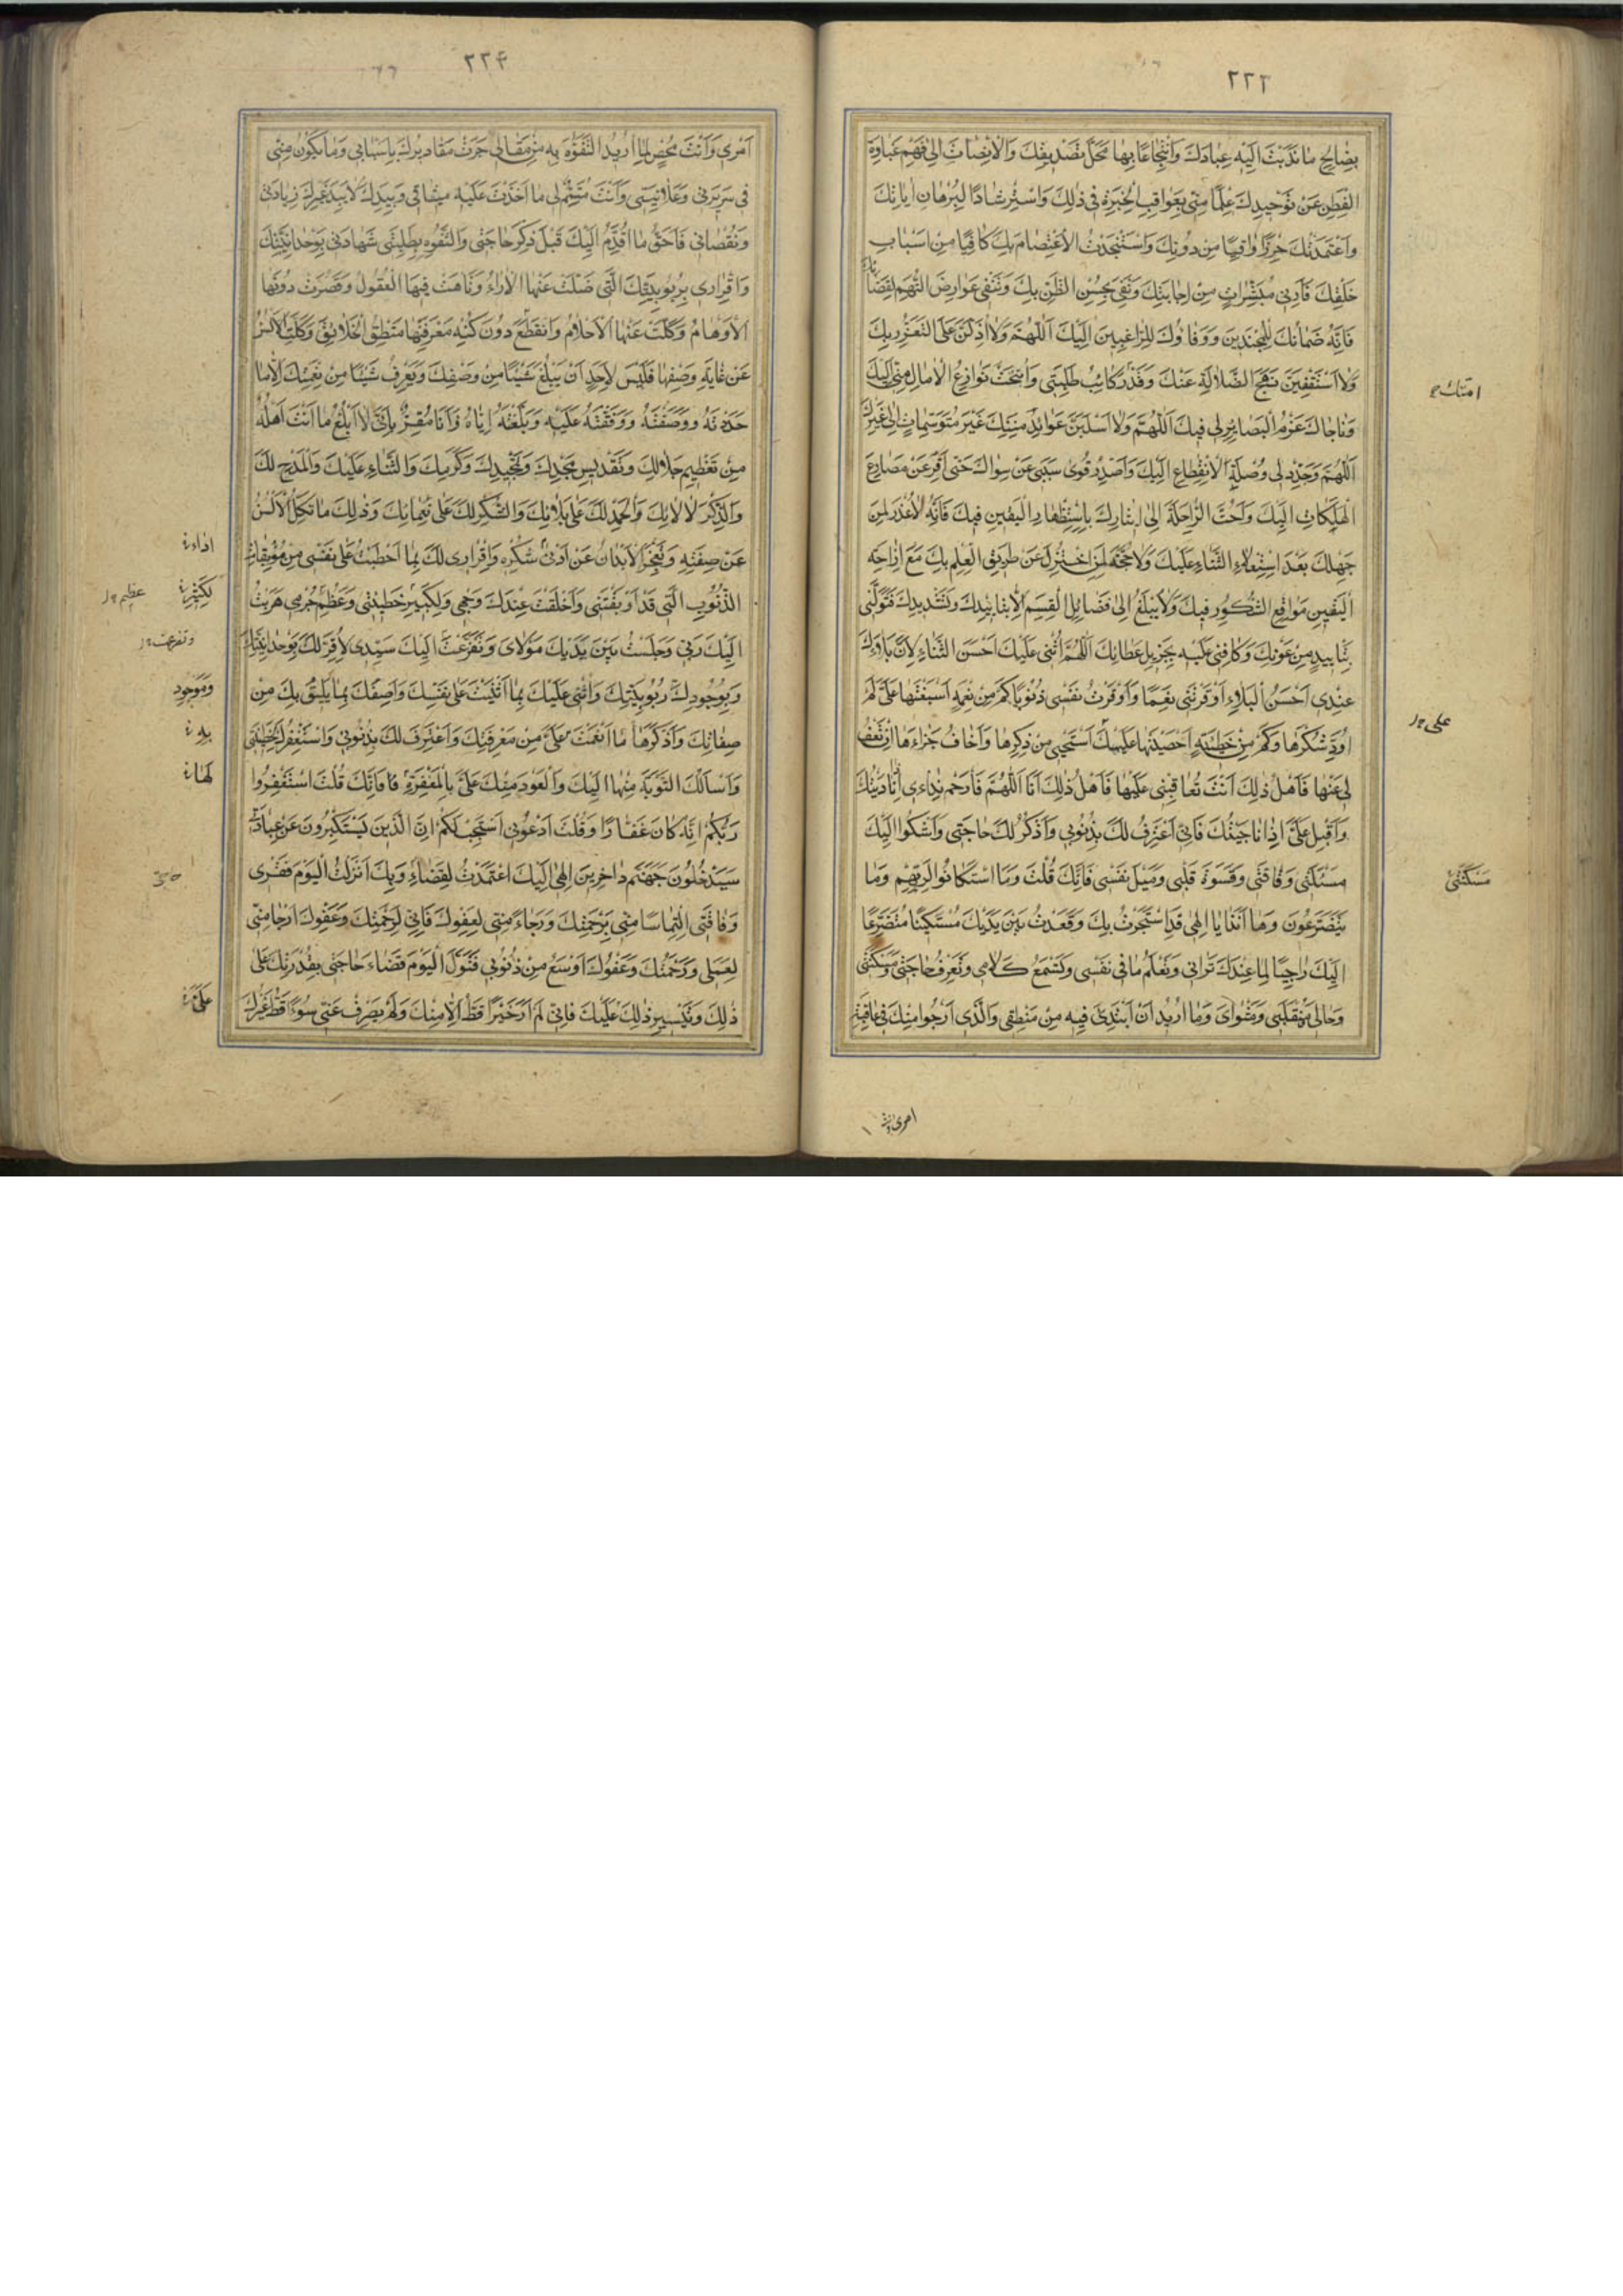 ٢٢٣
بِصٰالِحِ مٰا نَدَبْتَ اِلَيْهِ عِبٰادَكَ وَانْتِجٰاعًا بِهٰا مَحَلَّ تَصْديقِكَ وَالْاِنْصٰاتَ اِلىٰ فَهْمِ غَبٰاوَةِ
الْفِطَنِ عَنْ تَوْحيدِكَ عِلْمًا مِنّى بِعَوٰاقِبِ الْخِيَرَةِ فى ذٰلِكَ وَاسْتِرْشٰادًا لِبُرْهٰانِ اٰيٰاتِكَ
وَاعْتَمَدْتُكَ حِرْزًا وٰاقِيًا مِنْ دُونِكَ وَاسْتَنْجَدْتُ الْاِعْتِصٰامَ بِكَ كٰافِيًا مِنْ اَسْبٰابِ
خَلْقِكَ فَاَرِنى مُبَشِّرٰاتٍ مِنْ اِجٰابَتِكَ وَتَفى بِحُسْنِ الظَّنِّ بِكَ وَتَنْفى عَوٰارِضَ التُّهَمِ لِقَضٰائِكَ
فَاِنَّهُ ضَمٰانُكَ لِلْمُجْتَدينَ وَوَفٰاؤُكَ لِلرّٰاغِبينَ اِلَيْكَ اَللّٰهُمَّ وَلٰا اَذِلَّنَّ عَلَى التَّعَزُّزِ بِكَ
وَلٰا اَسْتَقْفِيَنَّ نَهْجَ الضَّلٰالَةِ عَنْكَ وَقَدْ رَكٰائِبُ طَلِبَتى وَاُنيخَتْ نَوٰازِعُ الْاٰمٰالِ مِنّى اِلَيْكَ
امتك ح
وَنٰاجٰاكَ عَزْمُ الْبَصٰائِرِ لى فيكَ اَللّٰهُمَّ وَلٰا اُسْلَبَنَّ عَوٰائِدَ مِنَنِكَ غَيْرَ مُتَوَسِّمٰاتٍ اِلىٰ غَيْرِكَ
اَللّٰهُمَّ وَجَدِّدْ لى وُصْلَةَ الْاِنْقِطٰاعِ اِلَيْكَ وَاصْدُدْ قُوىٰ سَبَبى عَنْ سِوٰاكَ حَتّى اَفِرَّ عَنْ مَصٰارِعِ
الْهَلَكٰاتِ اِلَيْكَ وَاَحُثَّ الرّٰاحِلَةَ اِلىٰ ايثٰارِكَ بِاسْتِظْهٰارِ الْيَقينِ فيكَ فَاِنَّهُ لٰا عُذْرَ لِمَنْ
جَهِلَكَ بَعْدَ اسْتِعْلٰاءِ الثَّنٰاءِ عَلَيْكَ وَلٰا حُجَّةَ لِمَنِ اخْتُزِلَ عَنْ طَريقِ الْعِلْمِ بِكَ مَعَ اِزٰاحَةِ
الْيَقينِ مَوٰاقِعَ الشُّكُوكِ فيكَ وَلٰا يُبْلَغُ اِلىٰ فَضٰائِلِ الْقِسَمِ اِلّٰا بِتَأْييدِكَ وَتَسْديدِكَ فَتَوَلَّنى
بِتَأْييدٍ مِنْ عَوْنِكَ وَكٰافِنى عَلَيْهِ بِجَزيلِ عَطٰائِكَ اَللّٰهُمَّ اُثْنى عَلَيْكَ اَحْسَنَ الثَّنٰاءِ لِاَنَّ بَلٰاءَكَ
عِنْدى اَحْسَنُ الْبَلٰاءِ اَوْقَرْتَنى نِعَمًا وَاَوْقَرْتُ نَفْسى ذُنُوبًا كَمْ مِنْ نِعْمَةٍ اَسْبَغْتَهٰا عَلَىَّ لَمْ
على ح
اُؤَدِّ شُكْرَهٰا وَكَمْ مِنْ خَطيئَةٍ اَحْصَيْتَهٰا عَلَيْكَ اَسْتَحْيى مِنْ ذِكْرِهٰا وَاَخٰافُ جَزٰاءَهٰا اِنْ تَعْفُ
لى عَنْهٰا فَاَهْلُ ذٰلِكَ اَنْتَ تُعٰاقِبْنى عَلَيْهٰا فَاَهْلُ ذٰلِكَ اَنَا اَللّٰهُمَّ فَارْحَمْ نِدٰاءى اِذٰا نٰادَيْتُكَ
وَاَقْبِلْ عَلَىَّ اِذٰا نٰاجَيْتُكَ فَاِنّى اَعْتَرِفُ لَكَ بِذُنُوبى وَاَذْكُرُ لَكَ حٰاجَتى وَاَشْكُوا اِلَيْكَ
مَسْكَنَتى وَفٰاقَتى وَقَسْوَةَ قَلْبى وَمَيْلَ نَفْسى فَاِنَّكَ قُلْتَ وَمَا اسْتَكٰانُوا لِرَبِّهِمْ وَمٰا
مَسْكَنَتى
يَتَضَرَّعُونَ وَهٰا اَنَذٰا يٰا اِلٰهى قَدِ اسْتَجَرْتُ بِكَ وَقَعَدْتُ بَيْنَ يَدَيْكَ مُسْتَكينًا مُتَضَرِّعًا
اِلَيْكَ رٰاجِيًا لِمٰا عِنْدَكَ تَرٰانى وَتَعْلَمُ مٰا فى نَفْسى وَتَسْمَعُ كَلٰامى وَتَعْرِفُ حٰاجَتى وَمَسْكَنَتى
وَحٰالى وَمُنْقَلَبى وَمَثْوٰاىَ وَمٰا اُريدُ اَنْ اَبْتَدِئَ فيهِ مِنْ مَنْطِقى وَالَّذى اَرْجُوا مِنْكَ فى عٰاقِبَةِ
امرى وانت
٢٢۴
اَمْرى وَاَنْتَ مُحْصٍ لِمٰا اُريدُ التَّفَوُّهَ بِهِ مِنْ مَقٰالى جَرَتْ مَقٰاديرُكَ بِاَسْبٰابى وَمٰا يَكُونُ مِنّى
فى سَريرَتى وَعَلٰانِيَتى وَاَنْتَ مُتِمٌّ لى مٰا اَخَذْتَ عَلَيْهِ ميثٰاقى وَبِيَدِكَ لٰا بِيَدِ غَيْرِكَ زِيٰادَتى
وَنُقْصٰانى فَاَحَقُّ مٰا اُقَدِّمُ اِلَيْكَ قَبْلَ ذِكْرِ حٰاجَتى وَالتَّفَوُّهِ بِطَلِبَتى شَهٰادَتى بِوَحْدٰانِيَّتِكَ
وَاِقْرٰارى بِرُبُوبِيَّتِكَ الَّتى ضَلَّتْ عَنْهَا الْاٰرٰاءُ وَتٰاهَتْ فيهَا الْعُقُولُ وَقَصُرَتْ دُونَهَا
الْاَوْهٰامُ وَكَلَّتْ عَنْهَا الْاَحْلٰامُ وَانْقَطَعَ دُونَ كُنْهِ مَعْرِفَتِهٰا مَنْطِقُ الْخَلٰائِقِ وَكَلَّتِ الْاَلْسُنُ
عَنْ غٰايَةِ وَصْفِهٰا فَلَيْسَ لِاَحَدٍ اَنْ يَبْلُغَ شَيْئًا مِنْ وَصْفِكَ وَيَعْرِفَ شَيْئًا مِنْ نَعْتِكَ اِلّٰا مٰا
حَدَدْتَهُ وَوَصَفْتَهُ وَوَقَفْتَهُ عَلَيْهِ وَبَلَّغْتَهُ اِيّٰاهُ وَاَنَا مُقِرٌّ بِاَنّى لٰا اَبْلُغُ مٰا اَنْتَ اَهْلُهُ
مِنْ تَعْظيمِ جَلٰالِكَ وَتَقْديسِ مَجْدِكَ وَتَمْجيدِكَ وَكَرَمِكَ وَالثَّنٰاءِ عَلَيْكَ وَالْمَدْحِ لَكَ
وَالذِّكْرِ لِاٰلٰائِكَ وَالْحَمْدِ لَكَ عَلىٰ بَلٰائِكَ وَالشُّكْرِ لَكَ عَلىٰ نَعْمٰائِكَ وَذٰلِكَ مٰا تَكِلُّ الْاَلْسُنُ
عَنْ صِفَتِهِ وَتَعْجِزُ الْاَبْدٰانُ عَنْ اَدْنىٰ شُكْرِهِ وَاِقْرٰارى لَكَ بِمَا احْتَطَبْتُ عَلىٰ نَفْسى مِنْ مُوبِقٰاتِ
اداء
الذُّنُوبِ الَّتى قَدْ اَوْبَقَتْنى وَاَخْلَقَتْ عِنْدَكَ وَجْهى وَلِكَبيرِ خَطيئَتى وَعَظيمِ جُرْمى هَرَبْتُ
لِكَثيرِ عظيم ح
اِلَيْكَ رَبّى وَجَلَسْتُ بَيْنَ يَدَيْكَ مَوْلٰاىَ وَتَضَرَّعْتُ اِلَيْكَ سَيِّدى لِاُقِرَّ لَكَ بِوَحْدٰانِيَّتِكَ
وَبِوُجُودِكَ رُبُوبِيَّتِكَ وَاُثْنى عَلَيْكَ بِمٰا اَثْنَيْتَ عَلىٰ نَفْسِكَ وَاَصِفَكَ بِمٰا يَليقُ بِكَ مِنْ
وَبِوُجُودِ
صِفٰاتِكَ وَاَذْكُرَهٰا مٰا اَنْعَمْتَ عَلَىَّ مِنْ مَعْرِفَتِكَ وَاَعْتَرِفَ لَكَ بِذُنُوبى وَاَسْتَغْفِرَكَ لِخَطيئَتى
بِهِ
وَاَسْاَلُكَ التَّوْبَةَ مِنْهٰا اِلَيْكَ وَالْعَوْدَ مِنْكَ عَلَىَّ بِالْمَغْفِرَةِ فَاِنَّكَ قُلْتَ اسْتَغْفِرُوا
لَهٰا
رَبَّكُمْ اِنَّهُ كٰانَ غَفّٰارًا وَقُلْتَ ادْعُونى اَسْتَجِبْ لَكُمْ اِنَّ الَّذينَ يَسْتَكْبِرُونَ عَنْ عِبٰادَتى
سَيَدْخُلُونَ جَهَنَّمَ دٰاخِرينَ اِلٰهى اِلَيْكَ اعْتَمَدْتُ لِقَضٰاءِ وَبِكَ اَنْزَلْتُ الْيَوْمَ فَقْرى
وَفٰاقَتى اِلْتِمٰاسًا مِنّى لِرَحْمَتِكَ وَرَجٰاءً مِنّى لِعَفْوِكَ فَاِنّى لِرَحْمَتِكَ وَعَفْوِكَ اَرْجٰا مِنّى
لِعَمَلى وَرَحْمَتُكَ وَعَفْوُكَ اَوْسَعُ مِنْ ذُنُوبى فَتَوَلَّ الْيَوْمَ قَضٰاءَ حٰاجَتى بِقُدْرَتِكَ عَلىٰ
ذٰلِكَ وَتَيْسيرِ ذٰلِكَ عَلَيْكَ فَاِنّى لَمْ اَرَ خَيْرًا قَطُّ اِلّٰا مِنْكَ وَلَمْ يَصْرِفْ عَنّى سُوءًا قَطُّ غَيْرُكَ